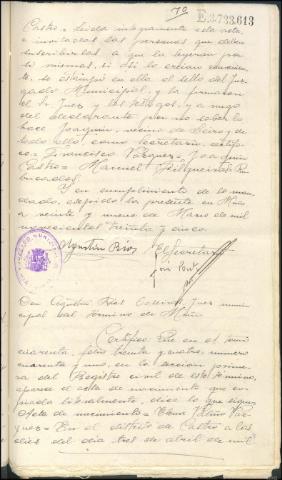 79
E.3.733.613
Castro = Leída íntegramente esta acta
e invitadas las personas que deben
suscribirla, a que la leyeran por
sí mismas, si así lo creían conveniente,
se estampó en ella el sello del Juz-
gado Municipal, y la firmaron
el Sr. Juez y los testigos, y a ruego
del declarante por no saber lo
hace Joaquín, vecino de
todo ello, como Secretario, certifi-
co = Francisco Vázquez = Joaquín
Castro = Manuel
Rubricados
Y en cumplimiento de lo man-
dado, expido la presente en Miño
a veinte y nueve de Marzo de mil
novecientos treinta y cinco.
Agustín Ríos El Secretario
Don Agustín Ríos, Juez muni-
cipal del término de Miño
Certifico: Que en el tomo
cuarenta, folio treinta y cuatro, número
cuarenta y uno, en la sección prime-
ra del Registro civil de este término,
aparece el acta de nacimiento que co-
piada literalmente, dice lo que sigue:
Acta de nacimiento =
= En el distrito de Castro a las
diez del día tres de abril de mil